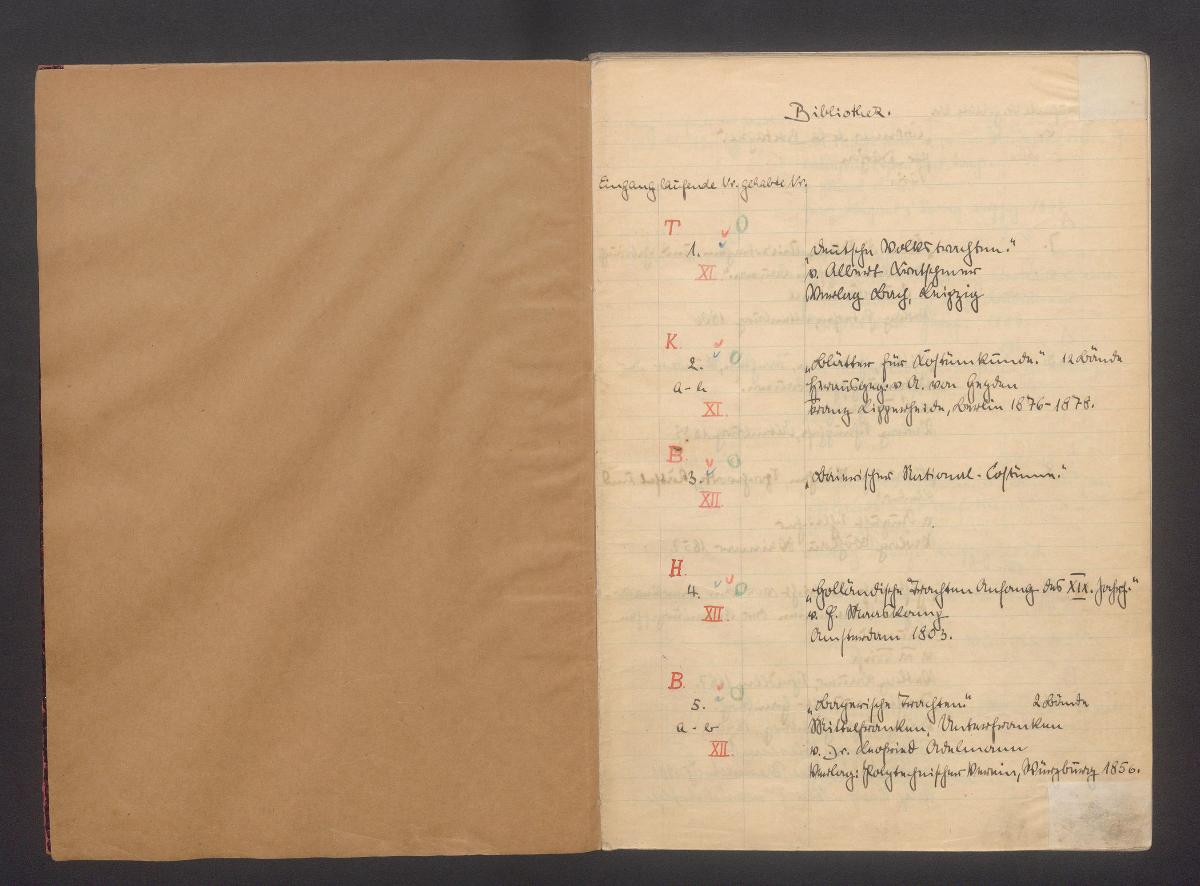 Bibliothek.
Eingang laufende Nr. gehabte Nr.
T
1. „Deutsche Volkstrachten.“
XI. v. Albert Kretschmer
Verlag Bach, Leipzig
K.
2. „Blätter für Kostümkunde.“ 12 Bände
a-l. Herausgeg. v. A. von Heyden
XI. Franz Lipperheide, Berlin 1876-1878.
B.
3. „Baierischer National-Costüme.“
XII.
H.
4. „Holländische Trachten Anfang des XIX. Jahrh.“
XII. v. E. Maaskamp
Amsterdam 1803.
B.
5. „Bayerische Trachten.“ 2 Bände
a-b Mittelfranken, Unterfranken
XII. v. Dr. Leofried Adelmann
Verlag: Polytechnischer Verein, Würzburg 1856.